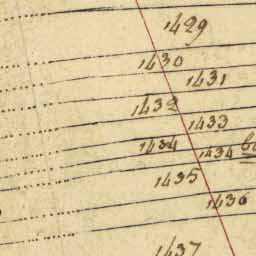 1429
1430
1431
1432
1433
1434
1434
1435
1436
1437